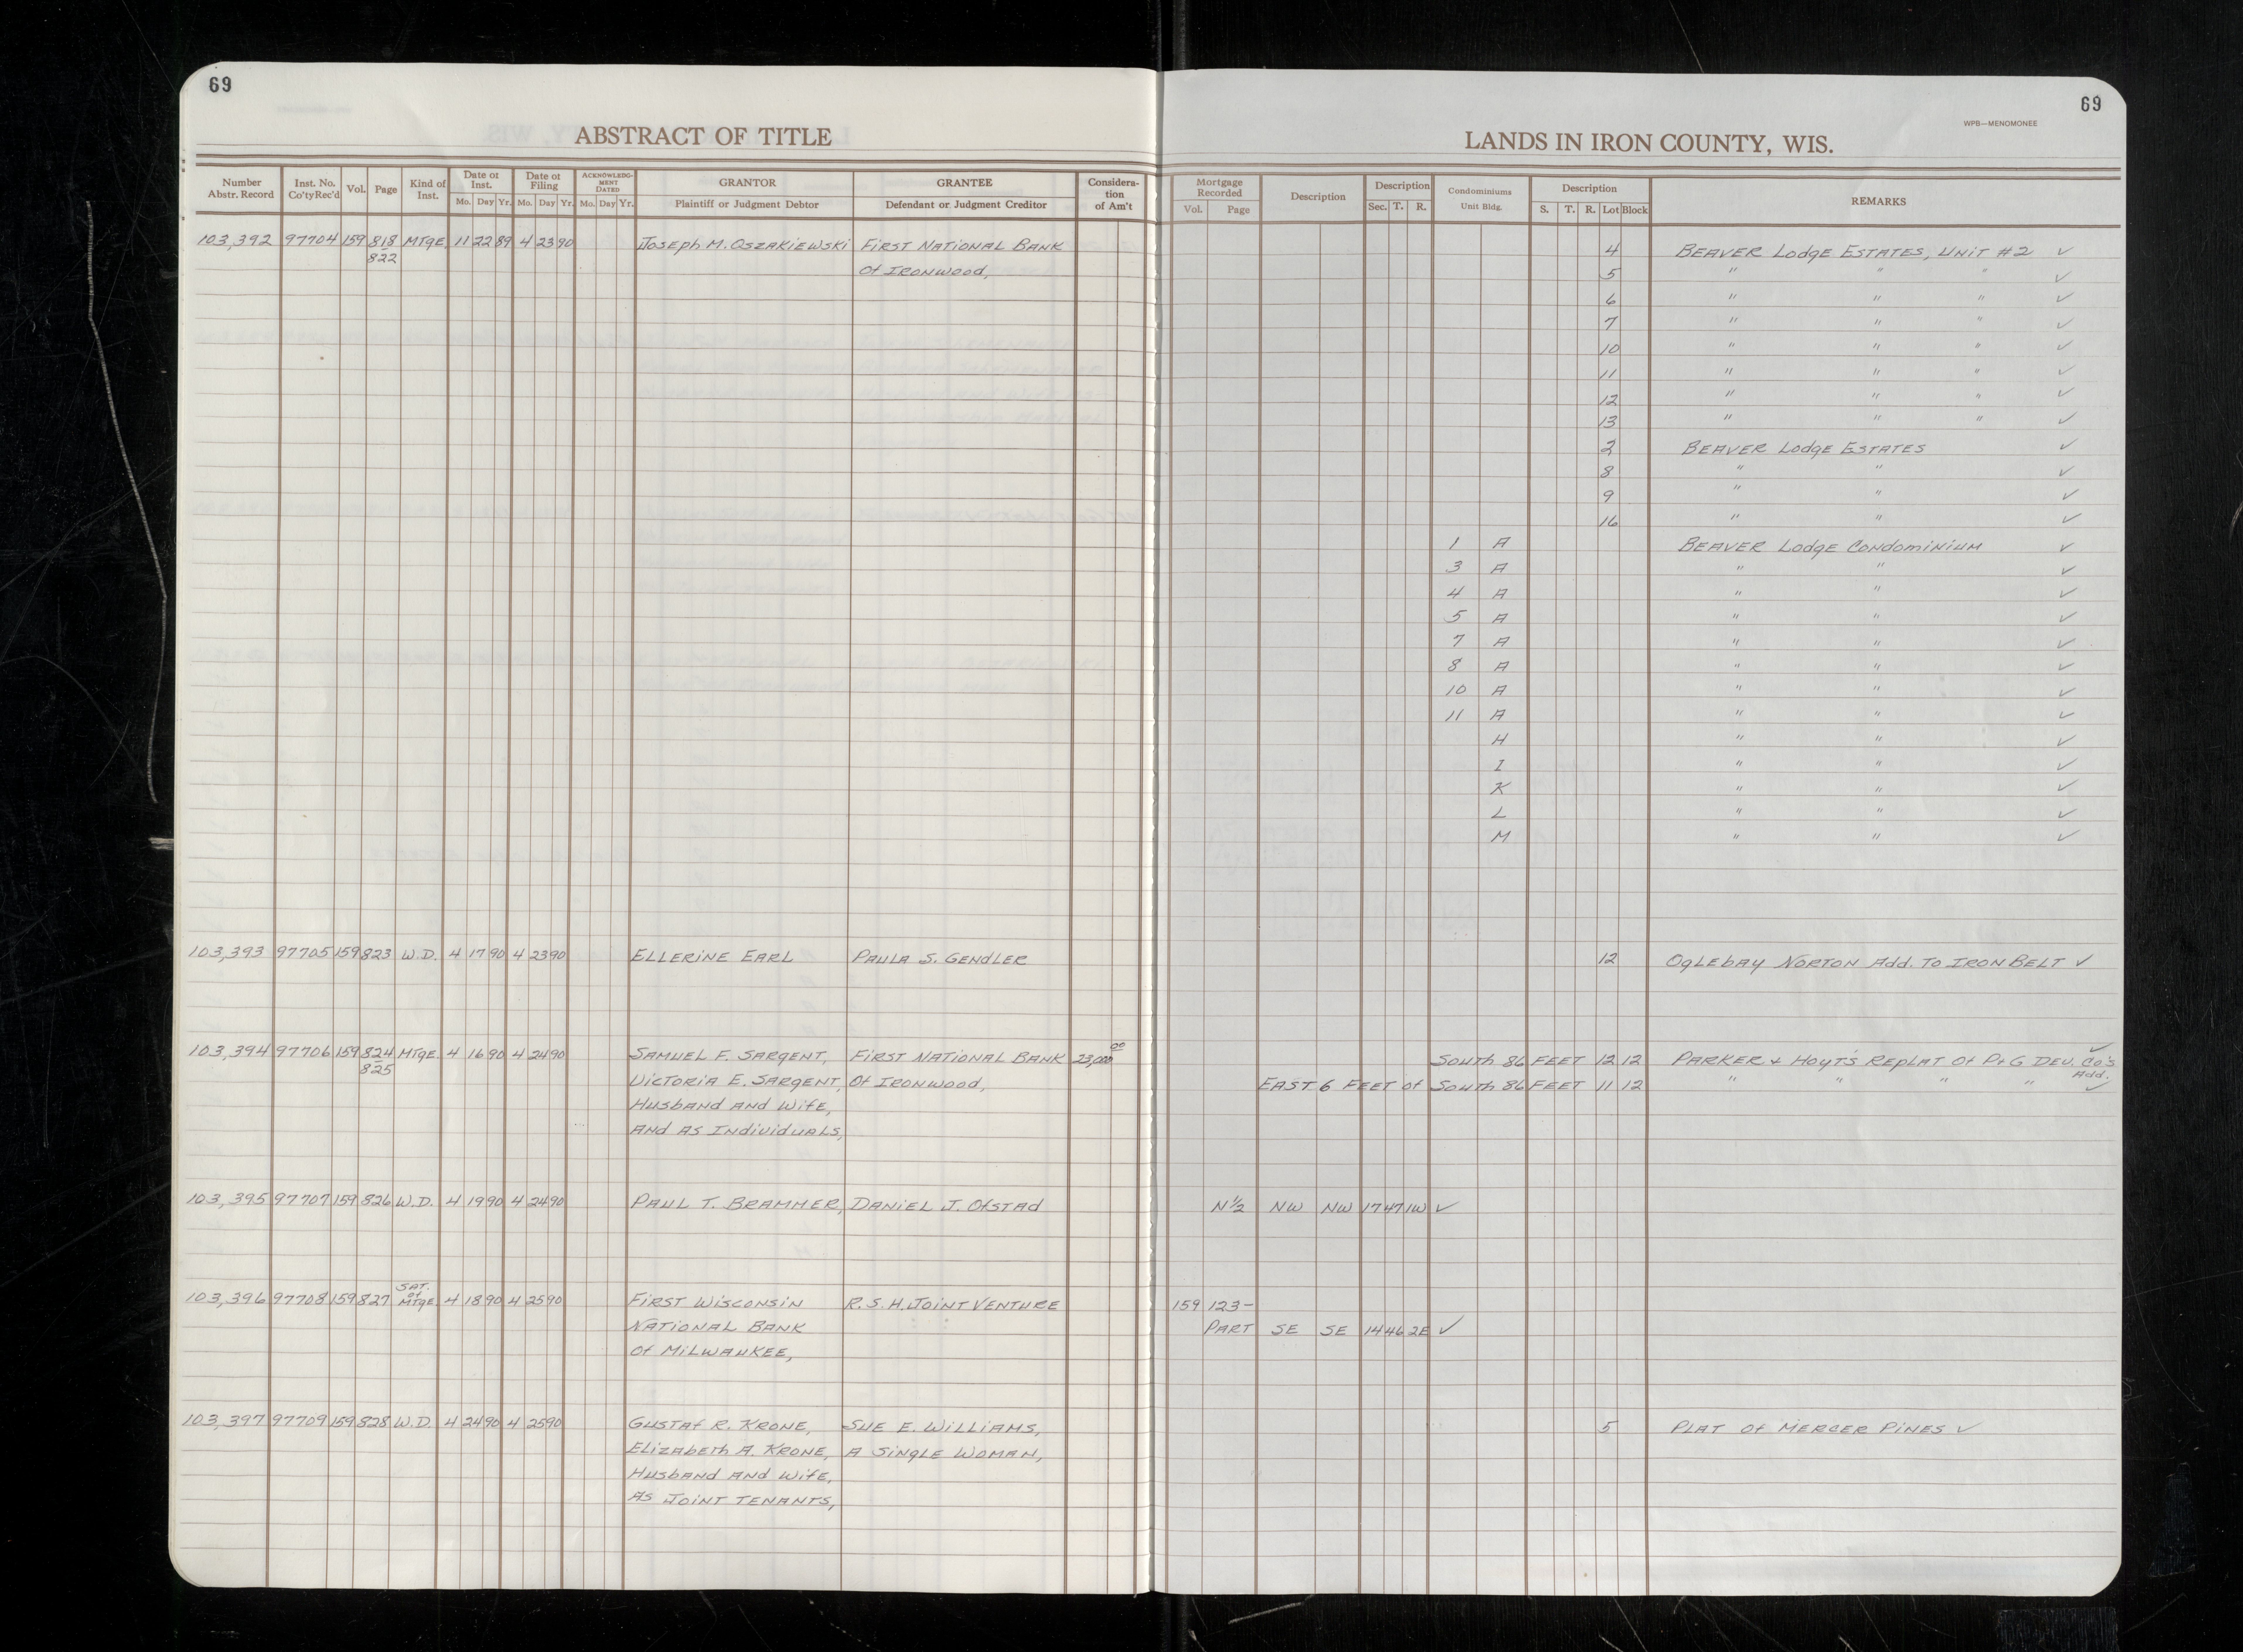 69
69
WPB—MENOMONEE
ABSTRACT OF TITLE
LANDS IN IRON COUNTY, WIS.
Number Abstr. Record Inst. No. Co'ty Rec'd Vol. Page Kind of Inst. Date of Inst. Mo. Day Yr. Date of Filing Mo. Day Yr. ACKNOWLEDGMENT DATED Mo. Day Yr. GRANTOR Plaintiff or Judgment Debtor GRANTEE Defendant or Judgment Creditor Consideration of Am't
Mortgage Recorded Vol. Page Description Description Sec. T. R. Condominiums Unit Bldg. Description S. T. R. Lot Block REMARKS
103,392 97704 159 818 MTGE 11 22 89 4 23 90 Joseph M. Oszakiewski First National Bank 4 Beaver Lodge Estates, Unit #2 ✓
822 Of Ironwood, 5 " " " ✓
6 " " " ✓
7 " " " ✓
10 " " " ✓
11 " " " ✓
12 " " " ✓
13 " " " ✓
2 Beaver Lodge Estates ✓
8 " " ✓
9 " " ✓
16 " " ✓
1 A Beaver Lodge Condominium ✓
3 A " " ✓
4 A " " ✓
5 A " " ✓
7 A " " ✓
8 A " " ✓
10 A " " ✓
11 A " " ✓
H " " ✓
I " " ✓
K " " ✓
L " " ✓
M " " ✓
103,393 97705 159 823 W.D. 4 17 90 4 23 90 Ellerine Earl Paula S. Gendler 12 Oglebay Norton Add. To Iron Belt ✓
103,394 97706 159 824 MTGE 4 16 90 4 24 90 Samuel F. Sargent, First National Bank 23,000 00 South 86 Feet 12 12 Parker & Hoyt's Replat Of P+G Dev. Co's Add. ✓
825 Victoria E. Sargent, Of Ironwood, East 6 Feet of South 86 Feet 11 12 " " " " ✓
Husband and Wife,
And As Individuals,
103,395 97707 159 826 W.D. 4 19 90 4 24 90 Paul T. Brammer, Daniel J. Ofstad N½ NW NW 17 47 1W ✓
103,396 97708 159 827 Sat. of Mtge 4 18 90 4 25 90 First Wisconsin R.S.H. Joint Venture 159 123-
National Bank Part SE SE 14 46 2E ✓
Of Milwaukee,
103,397 97709 159 828 W.D. 4 24 90 4 25 90 Gustaf R. Krone, Sue E. Williams, 5 Plat Of Mercer Pines ✓
Elizabeth A. Krone, A Single Woman,
Husband And Wife,
As Joint Tenants,